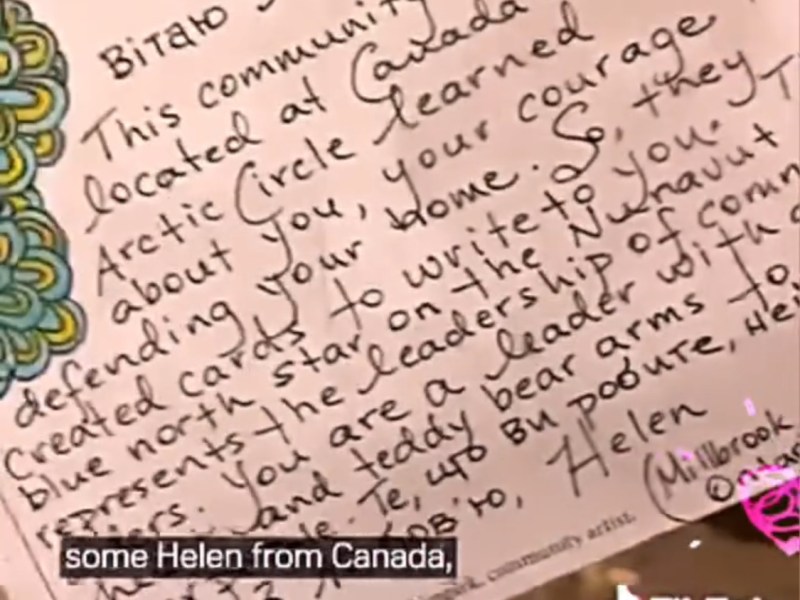 Вітаю
This community
located at Canada
Arctic Circle learned
about you, your courage
defending your home. So, they
created cards to write to you. T
blue north star on the Nunavut
represents the leadership of comm
You are a leader with a
and teddy bear arms to
Те, що ви робите, неі
Helen
(Millbrook
community artist.
some Helen from Canada,